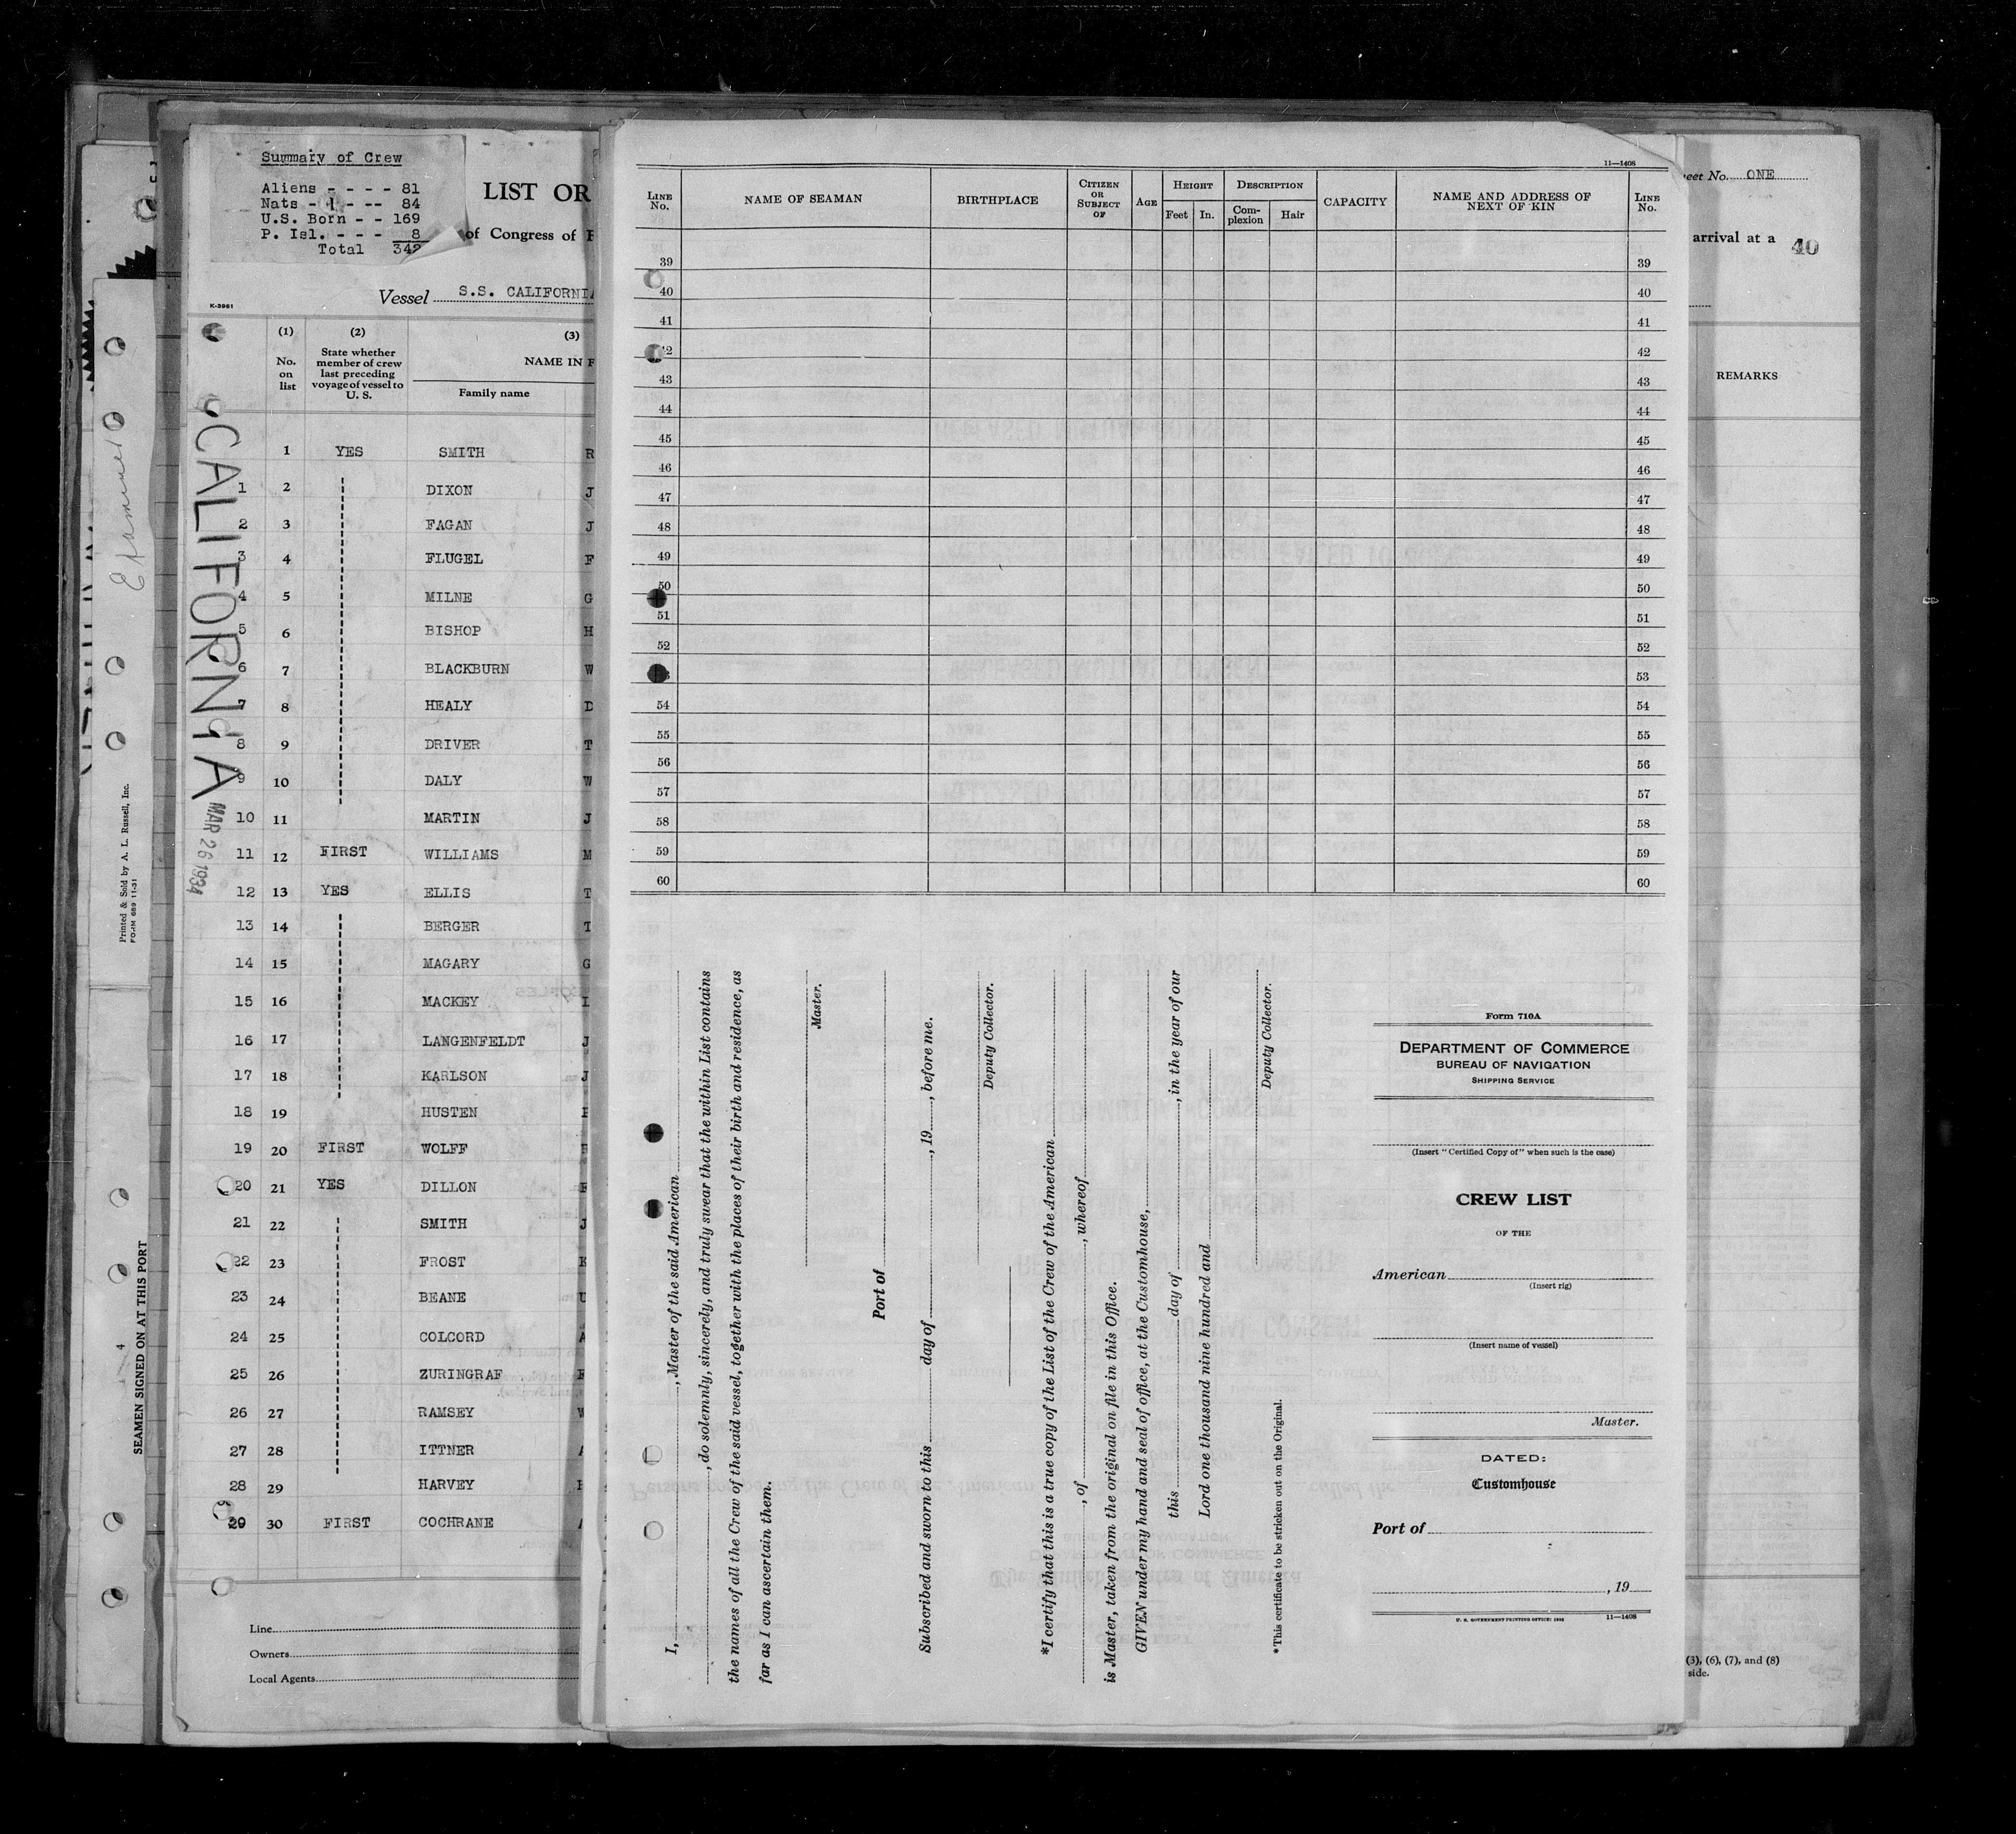 Summary of Crew
Aliens - - - - 81
Nats - 1 - -- 84
U.S. Born - - 169
P. Isl. - - - 8
Total 342
LIST OR
of Congress of
Vessel S.S. CALIFORNIA
K-3961
(1) (2) (3)
No. on list
State whether member of crew last preceding voyage of vessel to U. S.
NAME IN F
Family name
CALIFORNIA
MAR 26 1934
1 YES SMITH R
1 2 DIXON J
2 3 FAGAN J
3 4 FLUGEL F
4 5 MILNE G
5 6 BISHOP H
6 7 BLACKBURN W
7 8 HEALY D
8 9 DRIVER T
9 10 DALY W
10 11 MARTIN J
11 12 FIRST WILLIAMS M
12 13 YES ELLIS T
13 14 BERGER T
14 15 MAGARY G
15 16 MACKEY
16 17 LANGENFELDT J
17 18 KARLSON J
18 19 HUSTEN
19 20 FIRST WOLFF
20 21 YES DILLON
21 22 SMITH J
22 23 FROST
23 24 BEANE U
24 25 COLCORD A
25 26 ZURINGRAF
26 27 RAMSEY W
27 28 ITTNER
28 29 HARVEY
29 30 FIRST COCHRANE
Line
Owners
Local Agents
Examined
Printed & Sold by A. L. Russell, Inc.
FORM 689 11-31
4
SEAMEN SIGNED ON AT THIS PORT
11—1408
LINE No.
NAME OF SEAMAN
BIRTHPLACE
CITIZEN OR SUBJECT OF
AGE
HEIGHT
Feet In.
DESCRIPTION
Complexion Hair
CAPACITY
NAME AND ADDRESS OF NEXT OF KIN
LINE No.
39 39
40 40
41 41
42 42
43 43
44 44
45 45
46 46
47 47
48 48
49 49
50 50
51 51
52 52
53
54 54
55 55
56 56
57 57
58 58
59 59
60 60
I, , Master of the said American
, do solemnly, sincerely, and truly swear that the within List contains
the names of all the Crew of the said vessel, together with the places of their birth and residence, as
far as I can ascertain them.
Master.
Port of
Subscribed and sworn to this day of , 19 , before me.
Deputy Collector.
*I certify that this is a true copy of the List of the Crew of the American
, of , whereof
is Master, taken from the original on file in this Office.
GIVEN under my hand and seal of office, at the Customhouse,
this day of , in the year of our
Lord one thousand nine hundred and
Deputy Collector.
*This certificate to be stricken out on the Original.
Form 710A
DEPARTMENT OF COMMERCE
BUREAU OF NAVIGATION
SHIPPING SERVICE
(Insert "Certified Copy of" when such is the case)
CREW LIST
OF THE
American
(Insert rig)
(Insert name of vessel)
Master.
DATED:
Customhouse
Port of
, 19
U. S. GOVERNMENT PRINTING OFFICE: 1932 11—1408
eet No. ONE
arrival at a 40
REMARKS
(3), (6), (7), and (8)
side.